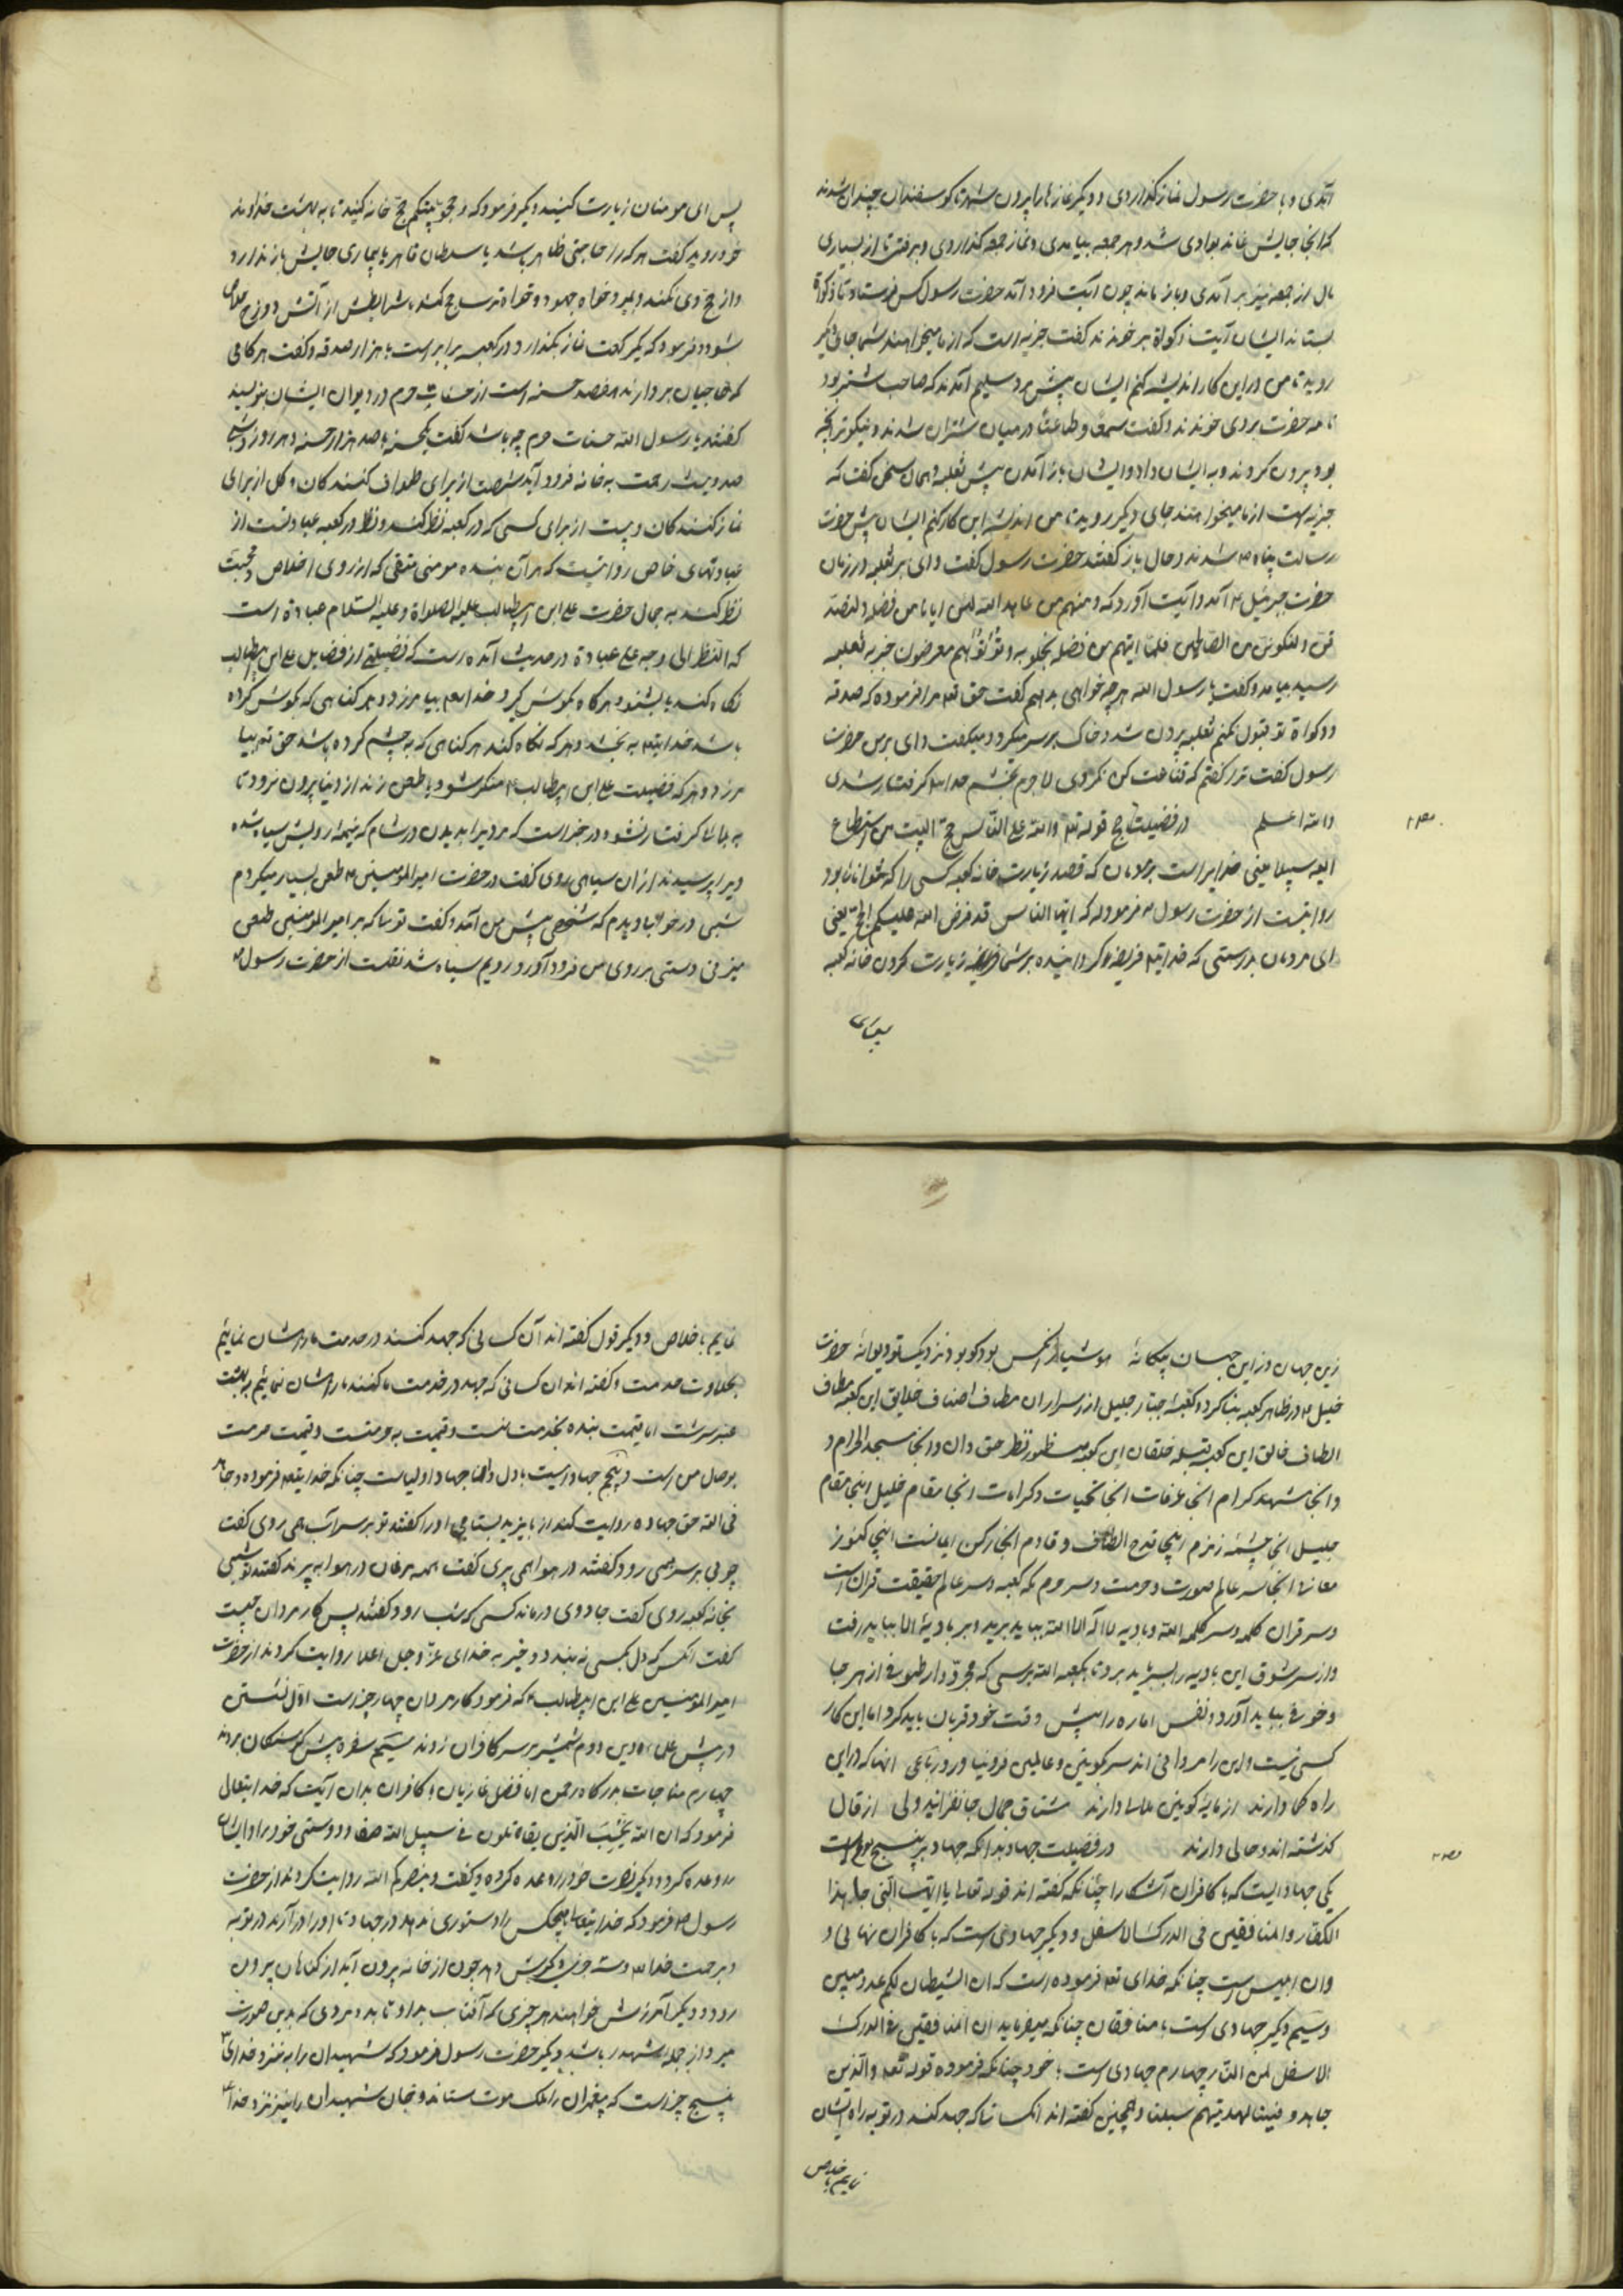 آمدی و با حضرت رسول نماز گذاردی و دیگر نمازها را بیرون شهر تا گوسفندان چندان شدند
که آنجا جایش نماند بوادی شد و هر جمعه بیامدی و نماز جمعه گذاردی و برفتی تا از بسیاری
مال از جمعه نیز بر آمدی و باز ماند چون آیت فرود آمد حضرت رسول کس فرستاد تا زکواة
بستاند ایشان آیت زکواة بر خوندند گفت جزیه است که از ما میخواهند شما جای دیگر
روید تا من در این کار اندیشه کنم ایشان پیش مرد سلیم آمدند که صاحب شتر بود
نامه حضرت بر وی خوندند و گفت سمعا و طاعتا در میان شتران شدند و نیکوتر آنچه
بود بیرون کردند و به ایشان داد و ایشان باز آمدن پیش ثعلبه و همان سخن گفت که
جزیه است از ما میخواهند جای دیگر روید تا من اندیشه این کار کنم ایشان پیش حضرت
رسالت پناه ص شدند و حال باز گفتند حضرت رسول گفت وای بر ثعلبه در زمان
حضرت جبرئیل ع آمد و آیت آورد که و منهم من عاهد الله لئن اتانا من فضله لنصد
قن و لنکونن من الصالحین فلما اتیهم من فضله بخلو به و تولو و هم معرضون خبر به ثعلبه
رسید بیامد و گفت یا رسول الله هر چه خواهی بدهم گفت حق تع مرا فرموده که صدقه
و زکواة تو قبول نکنم ثعلبه بیرون شد و خاک بر سر میکرد و میگفت وای بر من حضرت
رسول گفت ترا گفتم که قناعت کن نکردی لاجرم بخشم خدا گرفتار شدی
والله اعلم در فضیلت حج قوله تع ولله علی الناس حج البیت من استطاع
الیه سبیلا یعنی خدایراست بر مردمان که قصد زیارت خانه کعبه کسی را که توانا بود
روایتست از حضرت رسول ص فرموده که ایها الناس قد فرض الله علیکم الحج یعنی
ای مردمان بدرستی که خدایتع فریضه گردانیده بر شما زیارت کردن خانه کعبه
پس ای مومنان زیارت کنید و دیگر فرمود که و حجو بیتکم حج خانه کنید تا به بهشت خداوند
خود روید گفت هر که را حاجتی ظاهر باشد یا سلطان قاهر یا بیماری حایش باز ندارد
و از حج وی نکند و بمیرد خواه جهود و خواه ترسا حج کند بشرایطش از آتش دوزخ خلاص
شود و فرمود که یک رکعت نماز بگذارد در کعبه برابر است با هزار صدقه و گفت هر گامی
که حاجیان بردارند هفصد حسنه است از حسنات حرم در دیوان ایشان بنویسند
گفتند یا رسول الله حسنات حرم چه باشد گفت یک حسنه با صد هزار حسنه و هر روز
صد و بیست رحمت به خانه فرود آید شصت از برای طواف کنندگان و چهل از برای
نماز کنندگان و بیست از برای کسی که در کعبه نظر کند و نظر در کعبه عبادتست از
عبادتهای خاص روایتست که هر آن بنده مومنی متقی که از روی اخلاص و محبت
نظر کند به جمال حضرت علی ابن ابیطالب علیه الصلواة و علیه السلام عبادة است
که النظر الی وجه علی عبادة در حدیث آمده است که فضیلتی از فضایل علی ابن ابیطالب
نگاه کند یا بشنود هر گناه بگوش گیرد خدا تع بیامرزد و هر گناهی که بگوش کرده
باشد خدایتع به بخشد و هر که نگاه کند هر گناهی که به چشم کرده باشد حق تع بیا
مرزد و هر که فضیلت علی ابن ابیطالب ع منکر شود یا طعن زند از دنیا بیرون نرود تا
به بلائی گرفتار نشود در خبر است که مردیرا بدیدن در شام که نیمه از رویش سیاه شده
ویرا پرسیدند از آن سیاهی روی گفت در حضرت امیرالمومنین ع طعن بسیار میکردم
شبی در خواب دیدم که شخصی پیش من آمد و گفت تو که بر امیرالمومنین طعن
میزنی دستی بر روی من فرود آورد رویم سیاه شد نقلست از حضرت رسول ص
زین جهان وز این جهان بیگانهٔ هوشیار آنکس بود کو بود نزدیک تو دیوانهٔ حضرت
خلیل ع در ظاهر کعبه بنا کرد و کعبهٔ جبار جلیل از سر اران مطاف اصناف خلایق این کعبه مطاف
الطاف خالق این کعبه قبله خلقان این کعبه منظور نظر حق دان و انجا مسجد الحرام و
و انجا مشهد کرام انجا عرفات انجا تحیات و کرامات انجا مقام خلیل اینجا مقام
جلیل انجا چشمهٔ زمزم اینجا قدح الطاف و قادم انجا رکن ایمانست اینجا کنوز
معانی انجا سر عالم صورت و حرمت و سر حرم مکه کعبه و سر عالم حقیقت قرآن است
و سر قران کلمه و سر کلمه الله و بادیه لا اله الا الله بباید برید و بر بادیهٔ الا بباید رفت
و از سر شوق این بادیه را بسر باید برد تا بکعبه الله برسی که مجرد وار طوفی از هر جا
وخوفی بباید آورد و نفس اماره را پیش وقت خود قربان باید کرد اما این کار
کسی نیست و این را مردانی اند سر کونین و عالمین فرو نیارد رباعی انها که در این
راه کما دارند از مایهٔ کونین ملالی دارند مشتاق جمال جانفزایند ولی از قال
گذشته اند و حالی دارند در فضیلت جهاد بدانکه جهاد بر پنج نوع است
یکی جهادیست که با کافران آشکارا چنانکه گفته اند قوله تعالی یا ایها النبی جاهدا
الکفار والمنافقین فی الدرک الاسفل و دیگر جهادی است که با کافران نهانی و
وان ابلیس است چنانکه خدای تع فرموده است که ان الشیطان لکم عدو مبین
و سیم دیگر جهادی است با منافقان چنانکه میفرماید ان المنافقین فی الدرک
الاسفل من النار چهارم جهادی است با خود چنانکه فرموده قوله تع والذین
جاهدو فینا لنهدینهم سبلنا و همچنین گفته اند آنکسانیکه جهد کنند در توبه راه ایشان
نمایم باخلاص
نمایم باخلاص و دیگر قول گفته اند آن کسانی که جهد کنند در خدمت ما راه ایشان نمایم
بحلاوت خدمت و گفته اند آن کسانی که جهد در خدمت ما کنند ما راه ایشان نمائیم به بهشت
عنبر سرشت اما قیمت بنده بخدمت است و قیمت به حرمتست و قیمت حرمت
بوصال من است و پنجم جهادیست با دل و انها جهاد اولیاست چنانکه خدایتع فرموده وجاهدو
فی الله حق جهاده روایت کنند از بایزید بسطامی او را گفتند تو بر سر آب همی روی گفت
چوبی بر سر همی رود گفتند در هوا همی پری گفت همه مرغان در هوا به پرند گفتند تو شبی
بخانه کعبه روی گفت جادوی در ماند کسی که شب رود گفتند پس کار مردان چیست
گفت آنکس که دل بکسی نه بندد و خیر به خدای عز و جل اعلا روایت کردند از حضرت
امیرالمومنین علی ابن ابیطالب ع که فرمود کار مردان چهار چیز است اول نشستن
در پیش علماء دین دوم شمشیر بر سر کافران زدند سیم سفره پیش گرسنگان بردند
چهارم مناجات بدرگاه رحمن اما فضل غازیان با کافران بدان آیت که خدایتعالی
فرمود که ان الله یحب الذین یقاتلون فی سبیل الله صفا و دوستی خود مر ایشان
را وعده کرد و دیگر نصرت خود را وعده کرده و گفت و ینصرکم الله روایت کردند از حضرت
رسول ص فرمود که خدایتعالی هیچکس را دستوری ندهد در جهاد تا او را در آرند در توبه
و بر رحمت خدا چون از خانه بیرون آید از گناهان بیرون
رود و دیگر آمرزش خواهند هر چیزی که آفتاب بدو تابد و مردی که بدین صورت
میرد از جمله شهدا باشد و دیگر حضرت رسول فرمود که شهیدان را به نزد خدای
پنج چیز است که پیغمبران را ملک موت ستاند و جان شهیدان را نیز نزد خدا